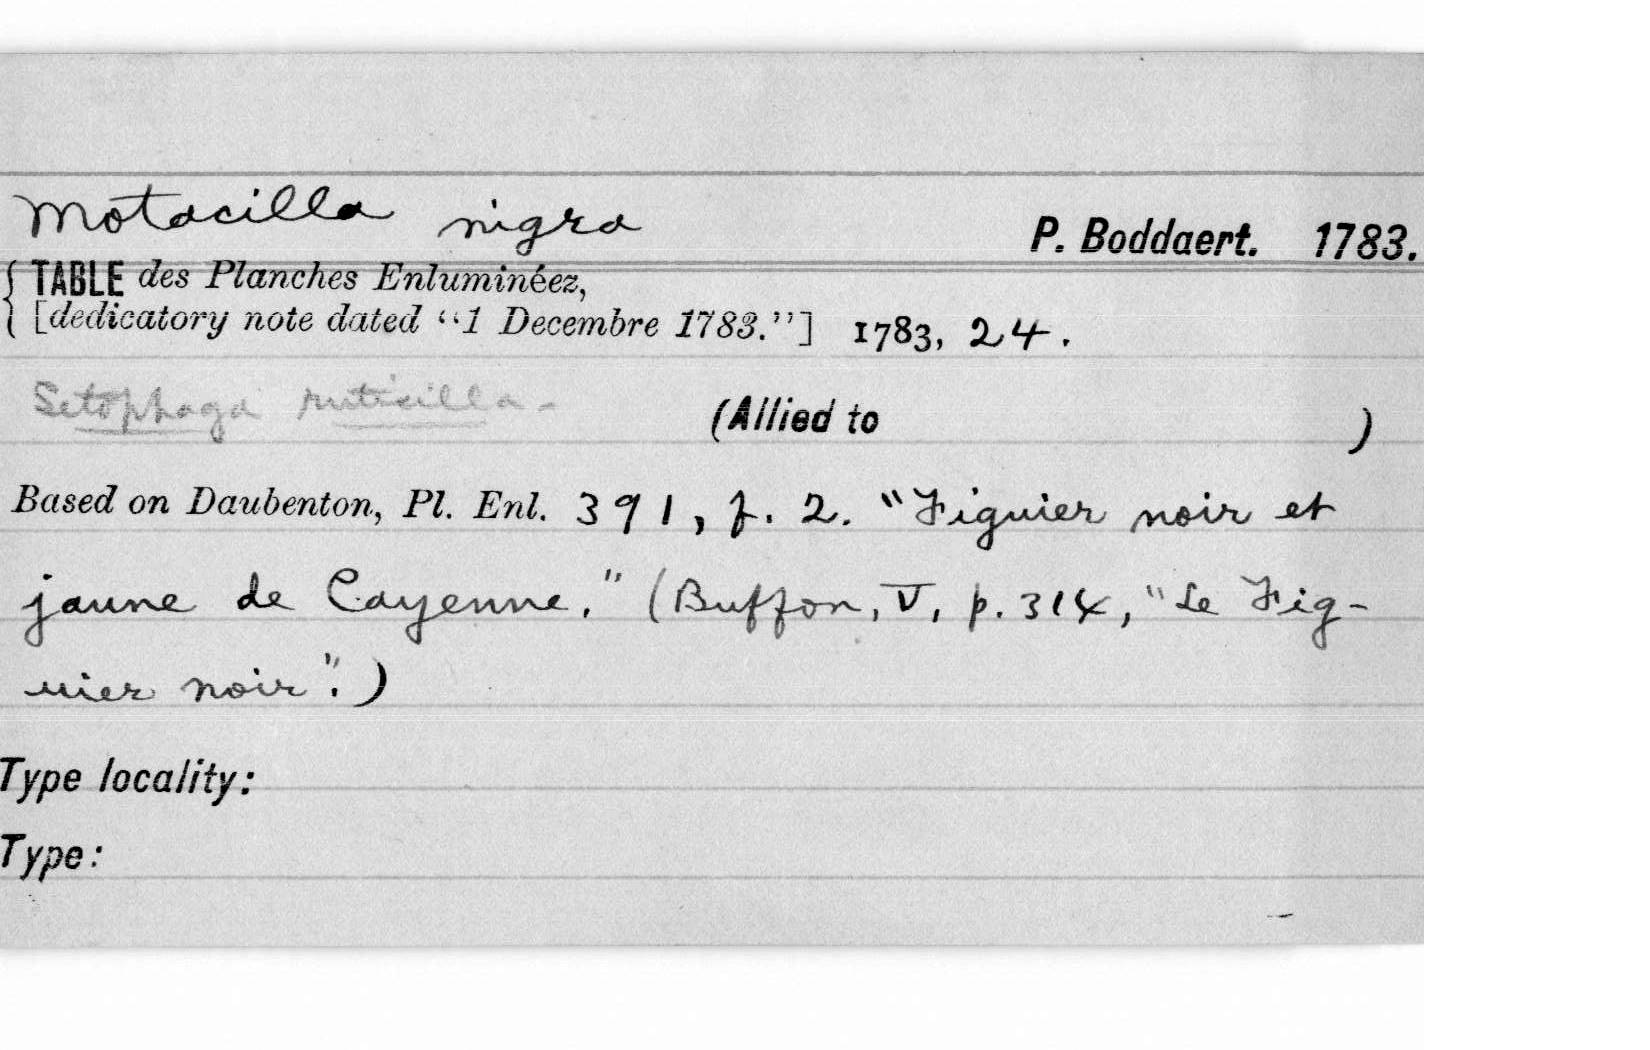 Motacilla nigra P. Boddaert. 1783.
TABLE des Planches Enluminéez,
[dedicatory note dated “1 Decembre 1783.”] 1783, 24.
Setophaga ruticilla- (Allied to )
Based on Daubenton, Pl. Enl. 391, f. 2. "Figuier noir et
jaune de Cayenne." (Buffon, V, p. 314, "Le Fig-
uier noir".)
Type locality:
Type: